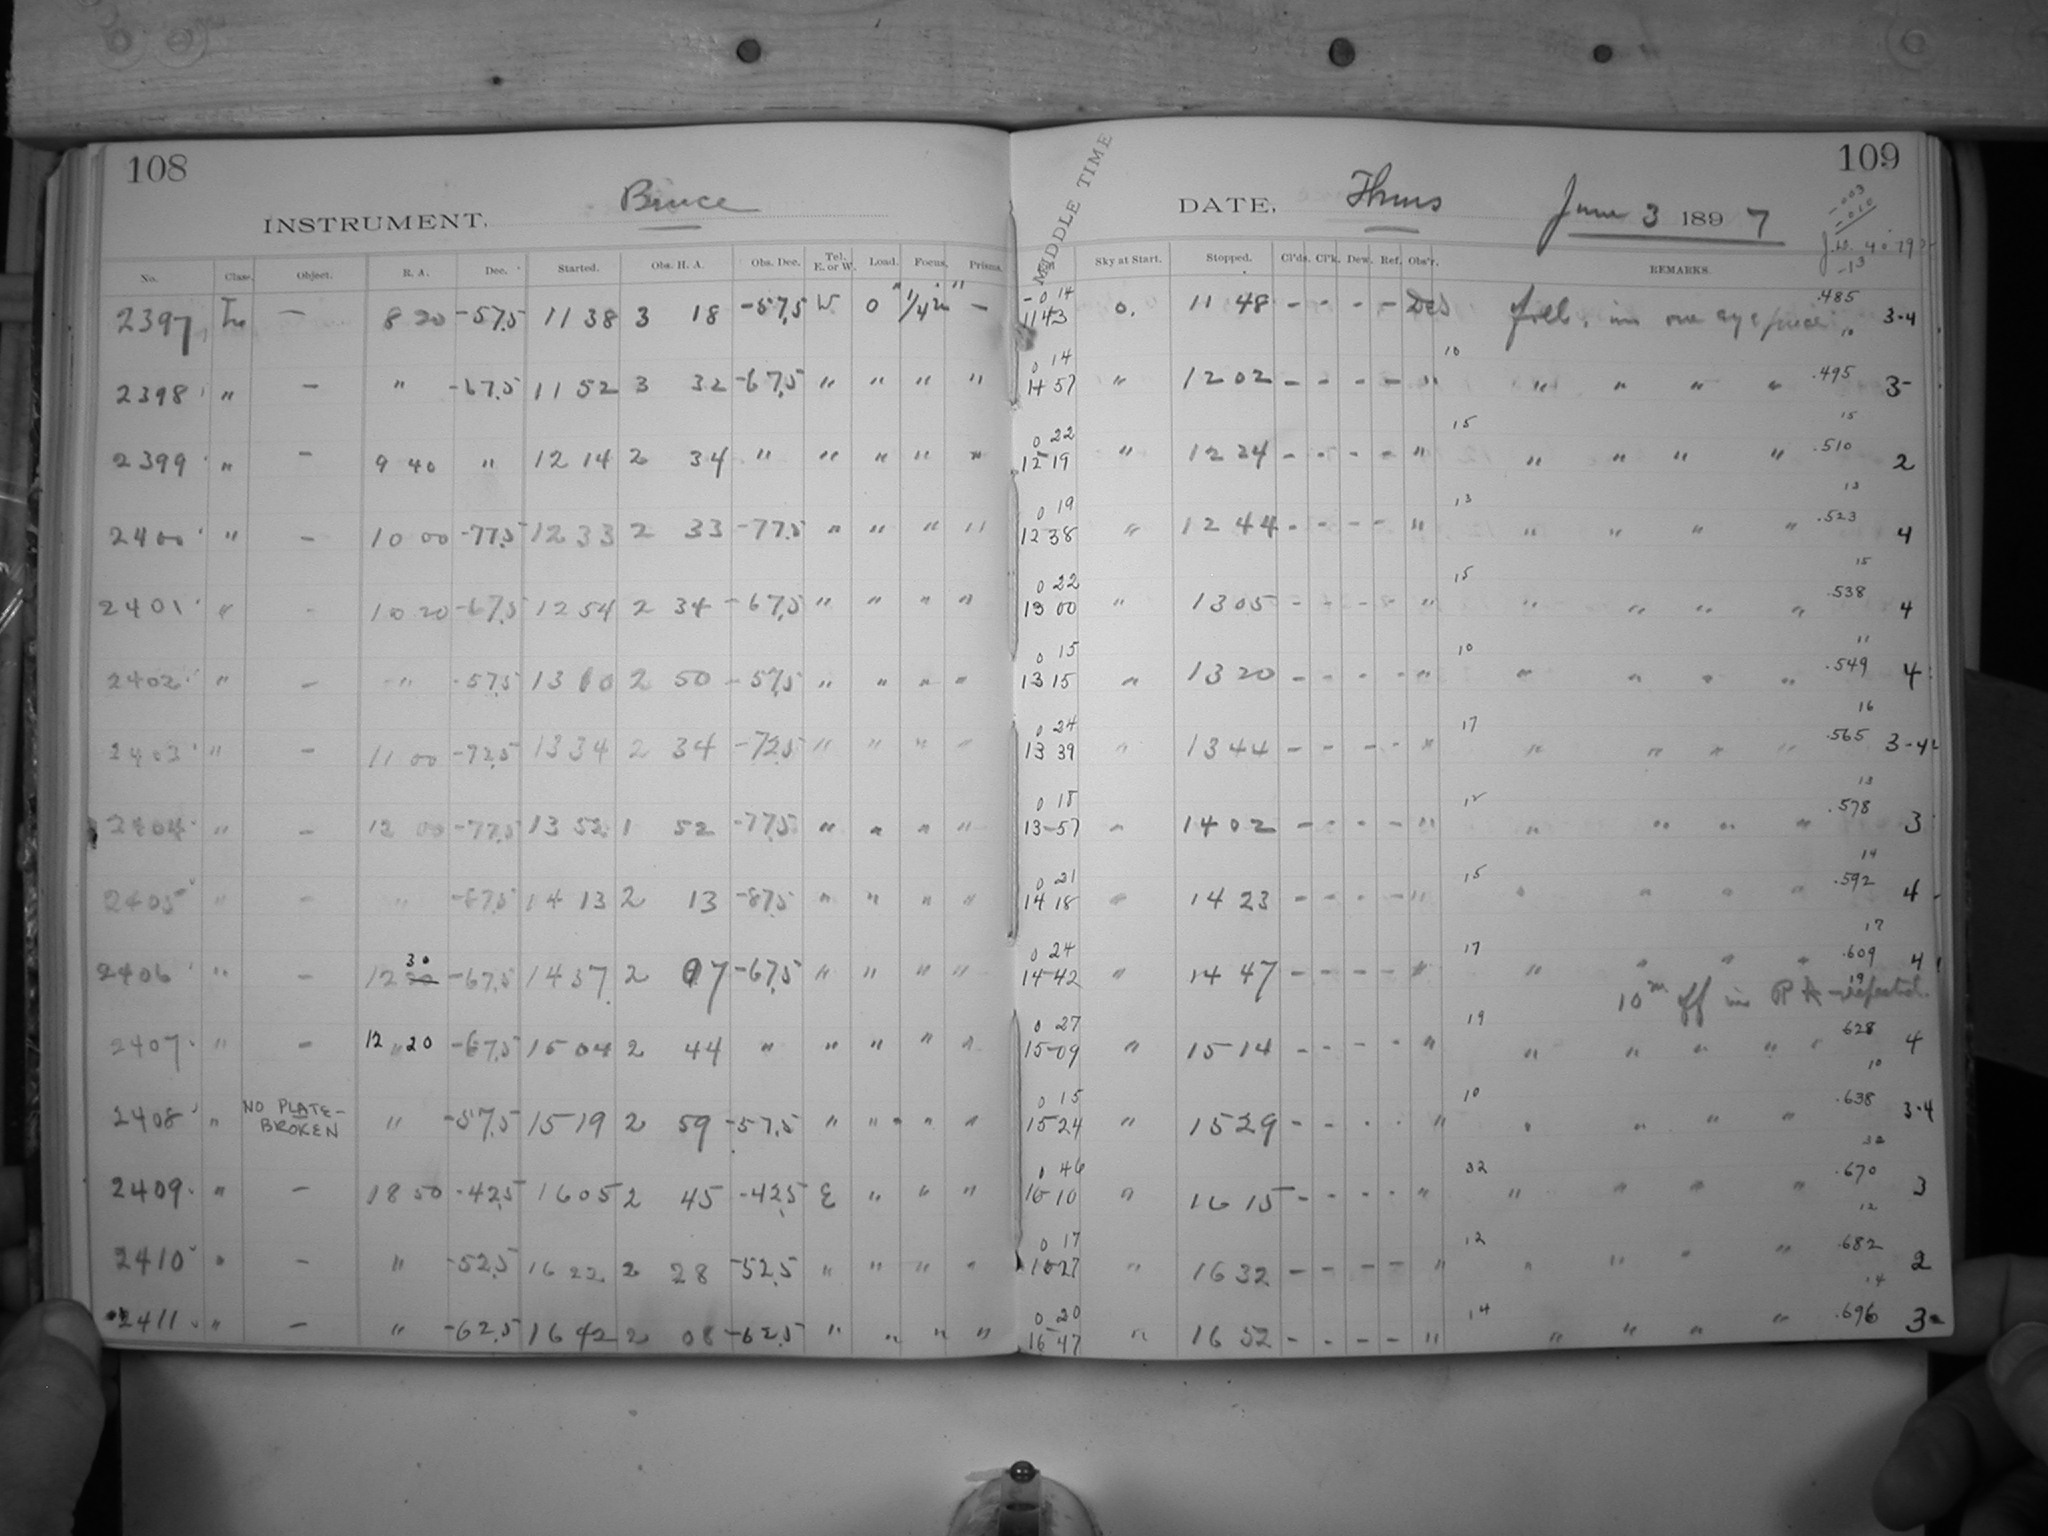 108
INSTRUMENT. Bruce
No. Class. Object. R. A. Dec. Started. Obs. H. A. Obs. Dec. Tel. E. or W. Load. Focus. Prisms.
2397 — 8 20 -57.5 11 38 3 18 -57.5 W. 0 " 1/4 in " —
2398 " — " -67.5 11 52 3 32 -67.5 " " " "
2399 " — 9 40 " 12 14 2 34 " " " " "
2400 " — 10 00 -77.5 12 33 2 33 -77.5 " " " "
2401 " - 10 20 -67.5 12 54 2 34 -67.5 " " " "
2402 " — " -57.5 13 10 2 50 -57.5 " " " "
2403 " — 11 00 -72.5 13 34 2 34 -72.5 " " " "
2404 " — 12 00 -77.5 13 52 1 52 -77.5 " " " "
2405 " — " -87.5 14 13 2 13 -87.5 " " " "
30
2406 " — 12 -67.5 14 37 2 07 -67.5 " " " "
2407 " — 12 " 20 -67.5 15 04 2 44 " " " " "
2408 " NO PLATE - BROKEN " -57.5 15 19 2 59 -57.5 " " " "
2409 " — 18 50 -42.5 16 05 2 45 -42.5 E " " "
2410 " — " -52.5 16 22 2 28 -52.5 " " " "
2411 " — " -62.5 16 42 2 08 -62.5 " " " "
109
MIDDLE TIME
DATE, Thurs June 3 1897
-.003
-.010
J.D. 4079
-13
Sky at Start. Stopped. Cl'ds. Cl'k. Dew. Ref. Obs'r. REMARKS.
-0 14 .485
11 43 0. 11 48 - - - - Des Foll. in one eyepiece 10 3-4
0 14 10
11 57 " 12 02 - - - - " " " " " .495 3-
0 22 15 15
12 19 " 12 24 - - - - " " " " " .510 2
0 19 13 13
12 38 " 12 44 - - - - " " " " " .523 4
0 22 15 15
13 00 " 13 05 - - - - " " " " " .538 4
0 15 10 11
13 15 " 13 20 - - - - " " " " " .549 4
0 24 17 16
13 39 " 13 44 - - - - " " " " " .565 3-4
0 18 12 13
13 57 " 14 02 - - - - " " " " " .578 3
0 21 15 14
14 18 " 14 23 - - - - " " " " " .592 4
0 24 17 17
14 42 " 14 47 - - - - " " " " " .609 4
10m off in RA - repeated. 19
0 27 19
15 09 " 15 14 - - - - " " " " " 628 4
0 15 10 10
15 24 " 15 29 - - - - " " " " " .638 3-4
0 46 32 32
16 10 " 16 15 - - - - " " " " " .670 3
0 17 12 12
16 27 " 16 32 - - - - " " " " " .682 2
0 20 14 14
16 47 " 16 52 - - - - " " " " " .696 3